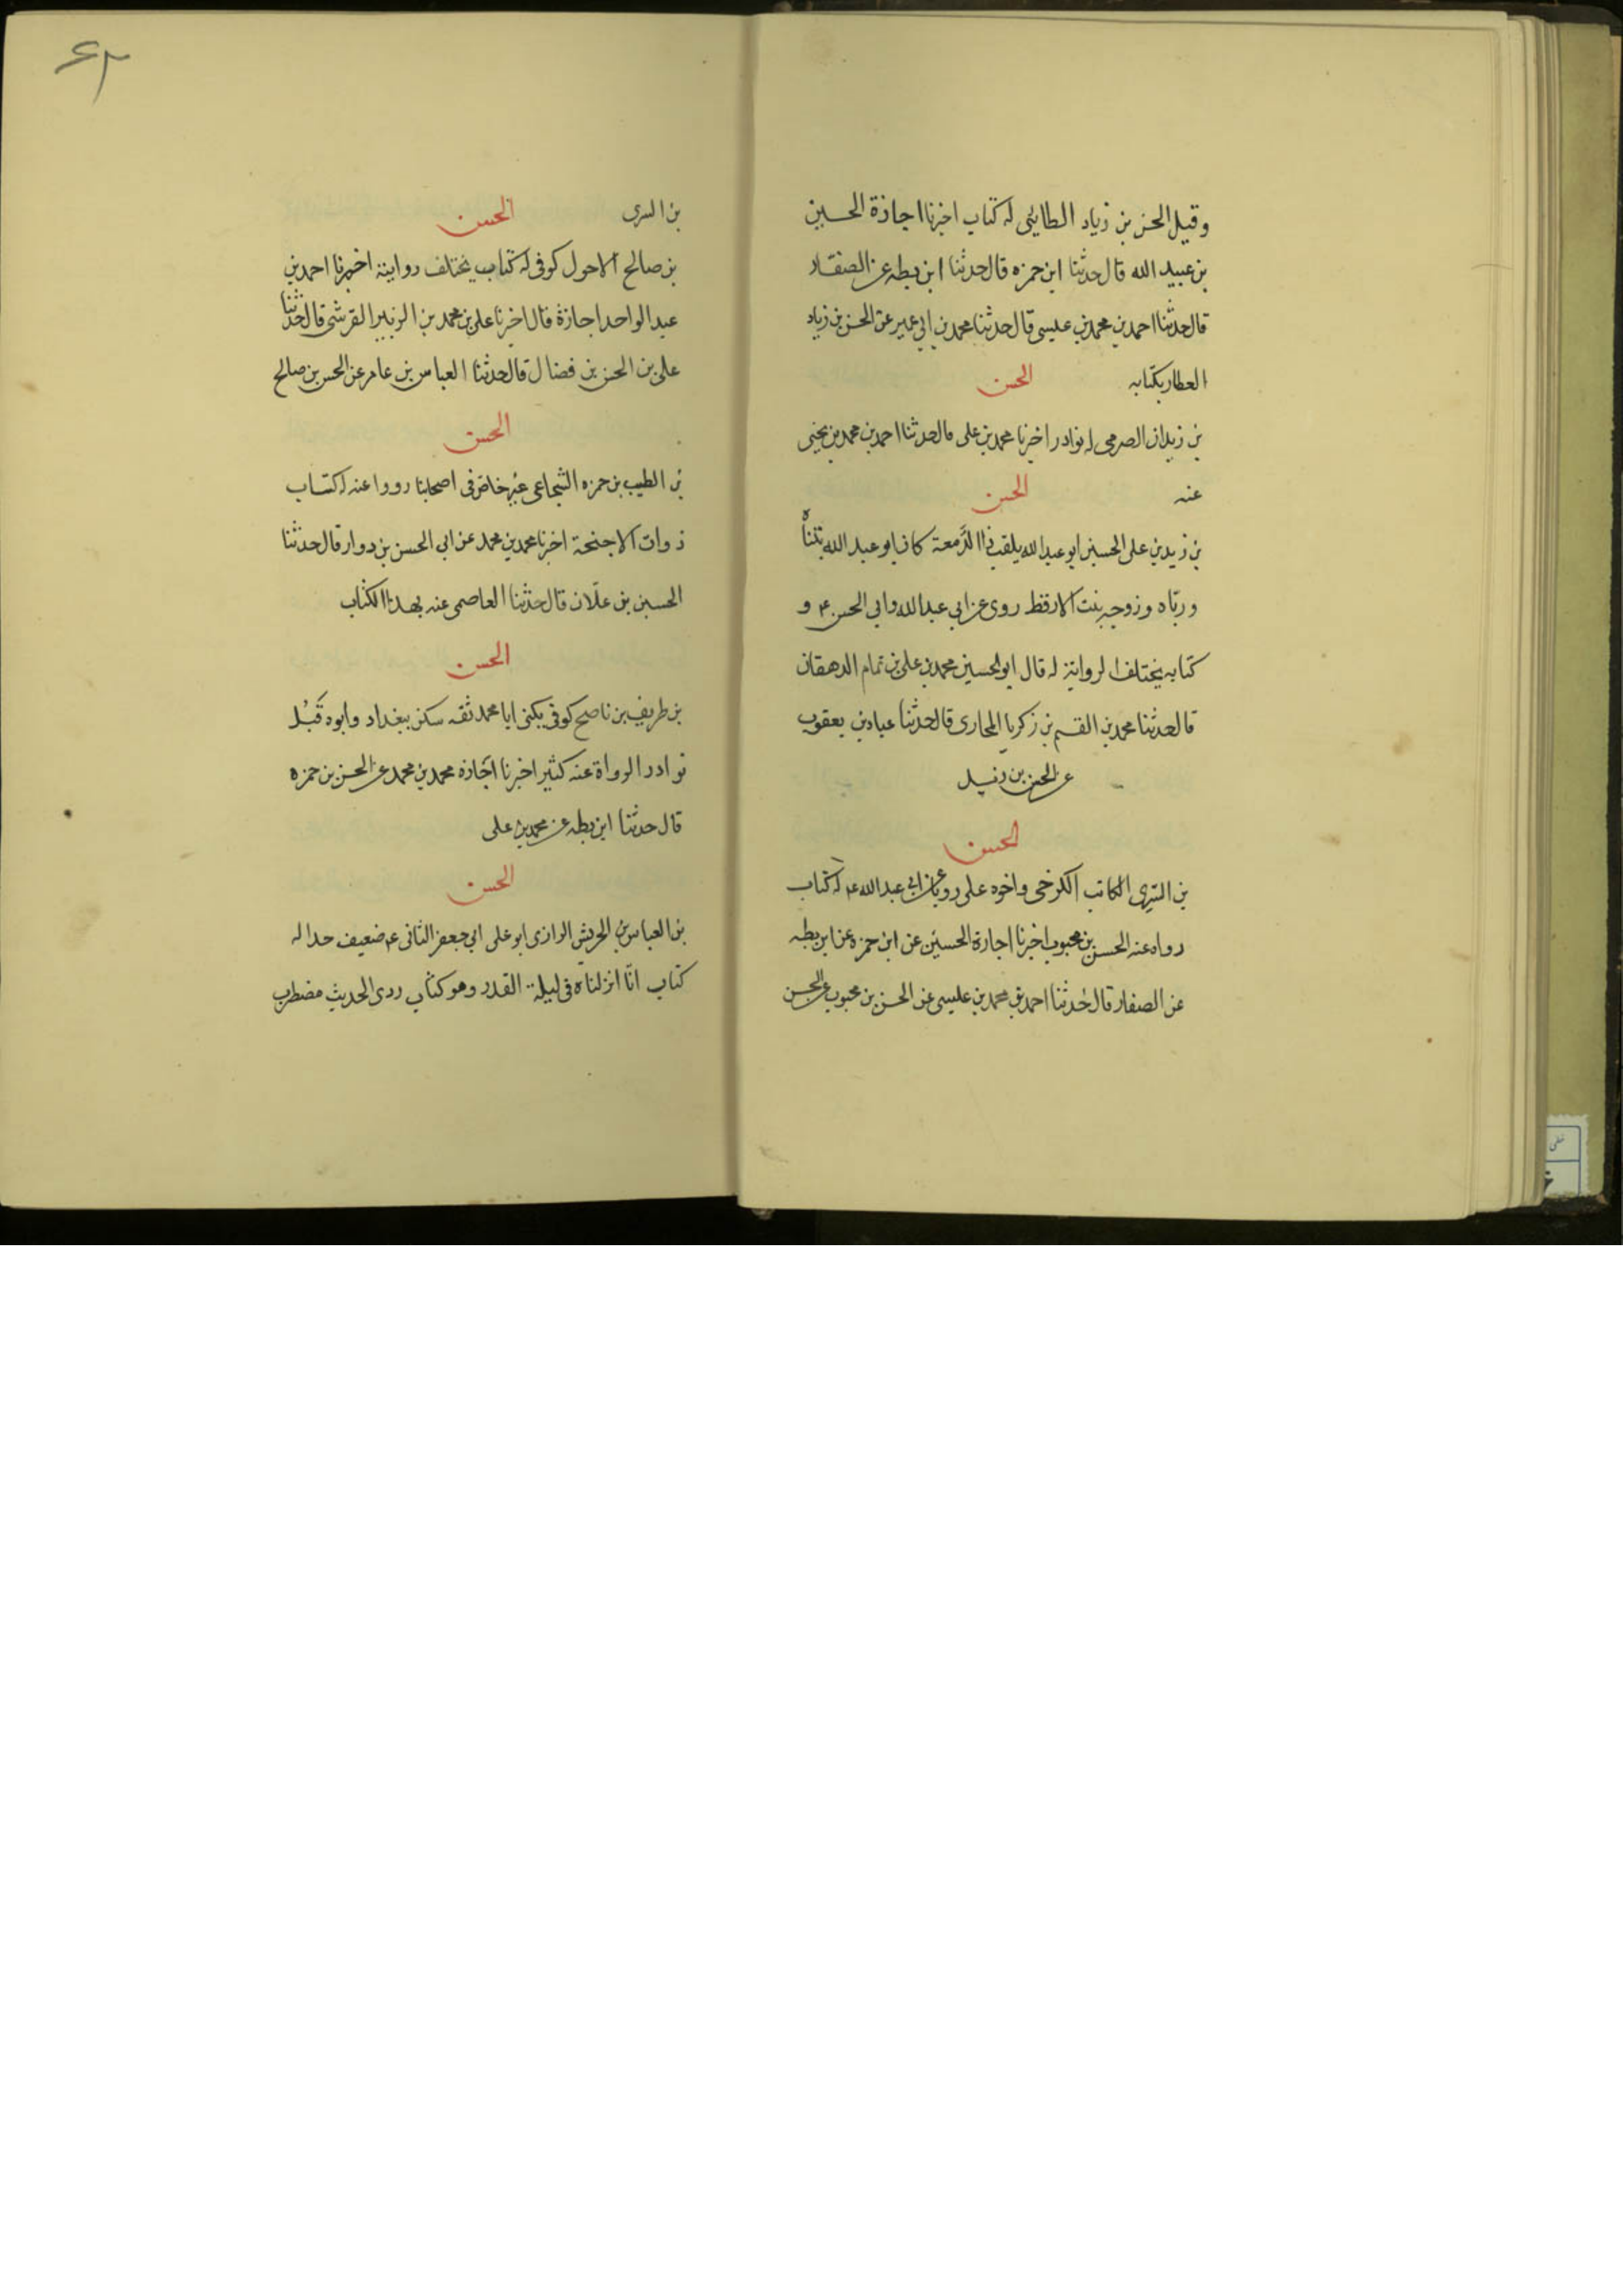 وقيل الحسن بن زياد الطايئى له كتاب اخبرنا اجازة الحسين
بن عبيد الله قال حدثنا ابن حمزه قال حدثنا ابن بطه عن الصفار
قال حدثنا احمد بن محمد بن عيسى قال حدثنا محمد بن ابى عمير عن الحسن بن زياد
العطار بكتابه الحسن
بن زيدان الصرمى له نوادر اخبرنا محمد بن على قال حدثنا احمد بن محمد بن يحيى
عنه الحسن
بن زيد بن على الحسين ابو عبد الله يلقب ذا الدمعة كان ابو عبد الله تبناه
ورباه وزوجه بنت الارقط روى عن ابى عبد الله وابى الحسن ع و
كتابه يختلف الرواية له قال ابو الحسين محمد بن على بن تمام الدهقان
قال حدثنا محمد بن القسم بن زكريا المحاربى قال حدثنا عباد بن يعقوب
عن الحسن بن زيد
الحسن
بن السرى الكاتب الكرخى واخوه على رويا عن ابى عبد الله ع له كتاب
رواه عنه الحسن بن محبوب اخبرنا اجازة الحسين عن ابن حمزه عن ابن بطه
عن الصفار قال حدثنا احمد بن محمد بن عيسى عن الحسن بن محبوب عن الحسن
٤٢
بن السرى الحسن
بن صالح الاحول كوفى له كتاب يختلف روايته اخبرنا احمد بن
عبد الواحد اجازة قال اخبرنا على بن محمد بن الزبير القرشى قال حدثنا
على بن الحسن بن فضال قال حدثنا العباس بن عامر عن الحسن بن صالح
الحسن
بن الطيب بن حمزه الشجاعى غير خاص فى اصحابنا رووا عنه له كتاب
ذوات الاجنحة اخبرنا محمد بن محمد عن ابى الحسن بن دوار قال حدثنا
الحسين بن علان قال حدثنا العاصمى عنه بهذا الكتاب
الحسن
بن ظريف بن ناصح كوفى يكنى ابا محمد ثقه سكن ببغداد وابوه قبل
نوادر الرواة عنه كثير اخبرنا اجازه محمد بن محمد عن الحسن بن حمزه
قال حدثنا ابن بطه عن محمد بن على
الحسن
بن العباس بن الحريش الرازى ابو على ابى جعفر الثانى ع ضعيف جدا له
كتاب انا انزلناه فى ليلة القدر وهو كتاب ردى الحديث مضطرب